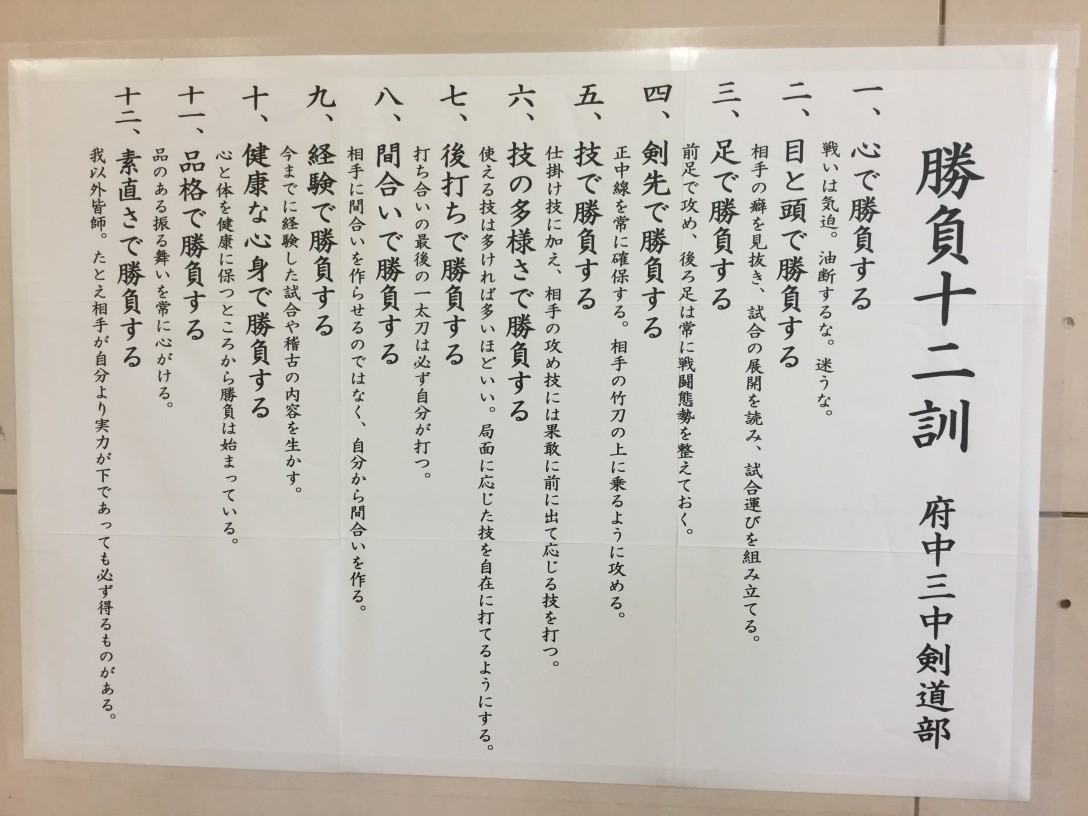 勝負十二訓　府中三中剣道部
一、心で勝負する
戦いは気迫。油断するな。迷うな。
二、目と頭で勝負する
相手の癖を見抜き、試合の展開を読み、試合運びを組み立てる。
三、足で勝負する
前足で攻め、後ろ足は常に戦闘態勢を整えておく。
四、剣先で勝負する
正中線を常に確保する。相手の竹刀の上に乗るように攻める。
五、技で勝負する
仕掛け技に加え、相手の攻め技には果敢に前に出て応じる技を打つ。
六、技の多様さで勝負する
使える技は多ければ多いほどいい。局面に応じた技を自在に打てるようにする。
七、後打ちで勝負する
打ち合いの最後の一太刀は必ず自分が打つ。
八、間合いで勝負する
相手に間合いを作らせるのではなく、自分から間合いを作る。
九、経験で勝負する
今までに経験した試合や稽古の内容を生かす。
十、健康な心身で勝負する
心と体を健康に保つところから勝負は始まっている。
十一、品格で勝負する
品のある振る舞いを常に心がける。
十二、素直さで勝負する
我以外皆師。たとえ相手が自分より実力が下であっても必ず得るものがある。